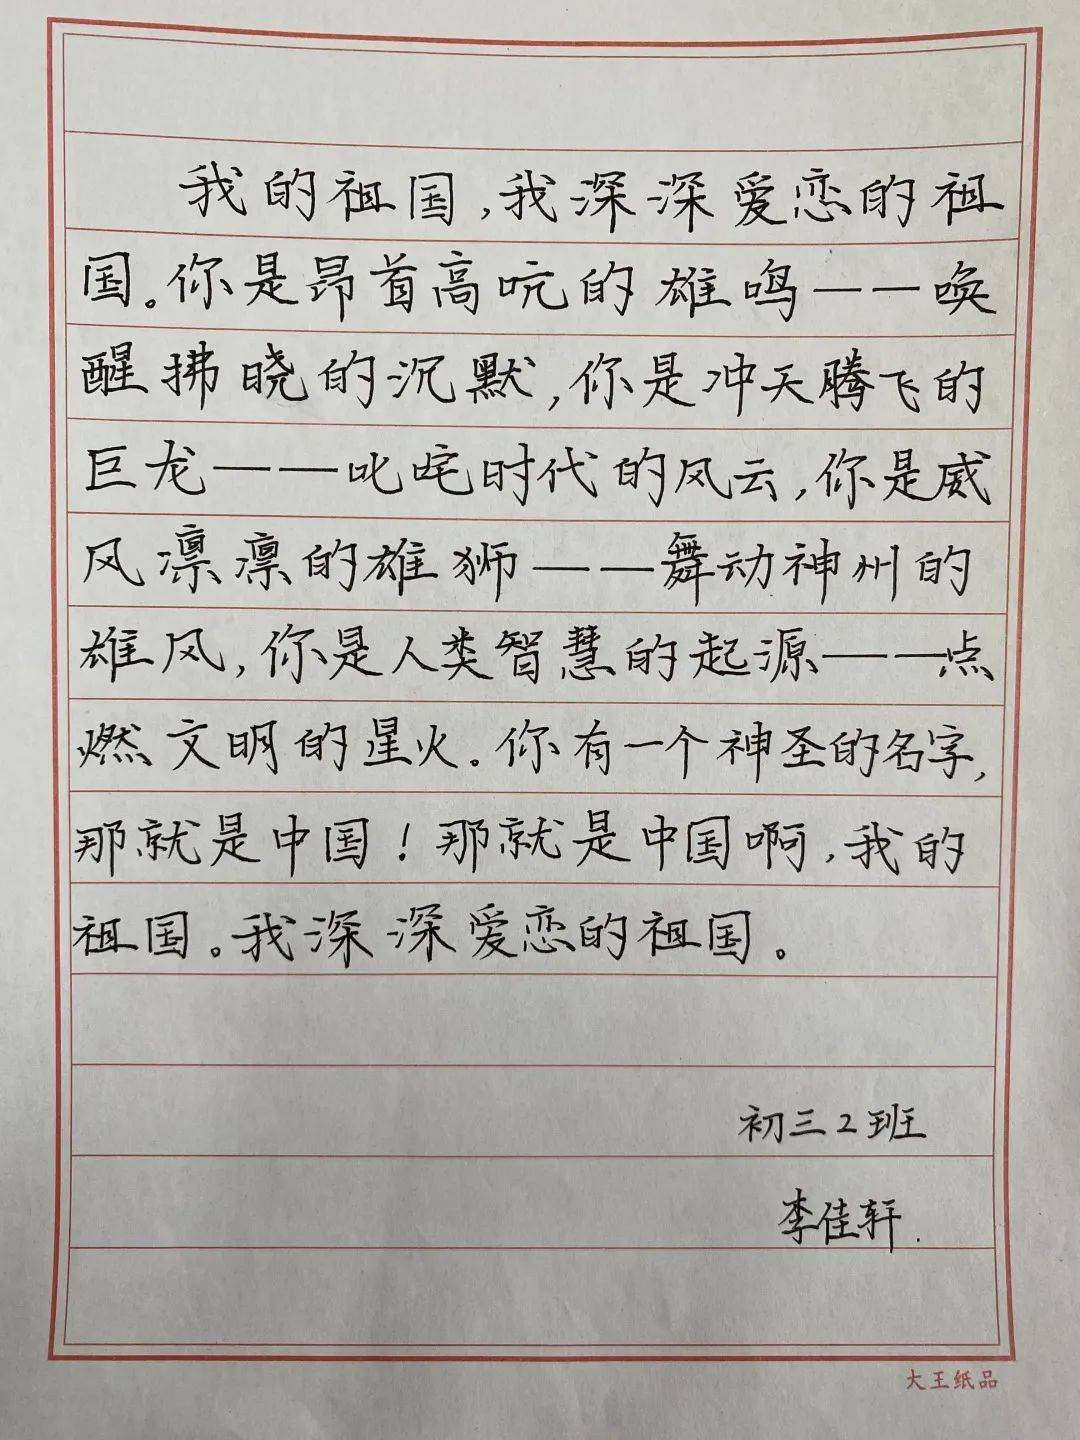 我的祖国,我深深爱恋的祖
国。你是昂首高吭的雄鸣——唤
醒拂晓的沉默,你是冲天腾飞的
巨龙——叱咤时代的风云,你是威
风凛凛的雄狮——舞动神州的
雄风,你是人类智慧的起源——点
燃文明的星火。你有一个神圣的名字,
那就是中国!那就是中国啊,我的
祖国。我深深爱恋的祖国。
初三2班
李佳轩.
大王纸品